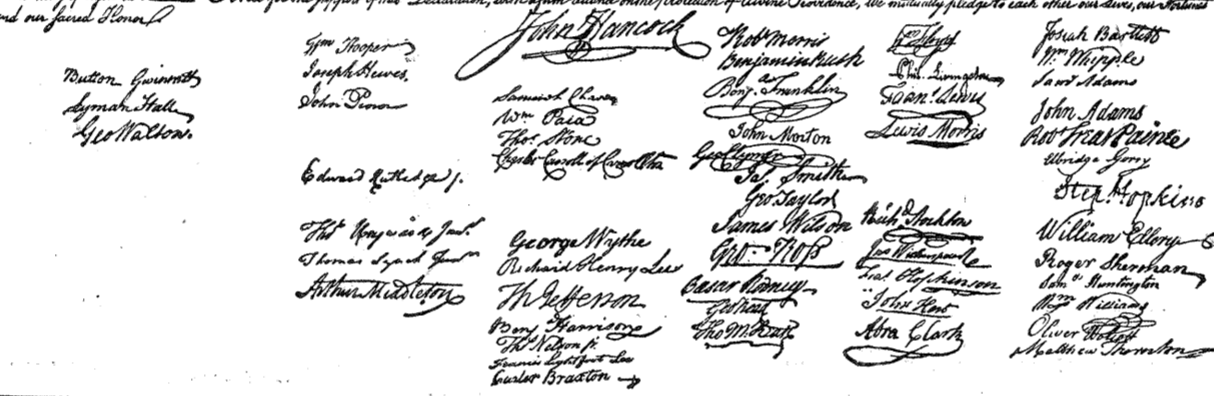 we mutually pledge to each other our Lives, our Fortunes
and our sacred Honor.
Button Gwinnett
Lyman Hall
Geo Walton.
Wm Hooper
Joseph Hewes,
John Penn
Edward Rutledge /.
Thos Heyward Junr.
Thomas Lynch Junr.
Arthur Middleton
John Hancock
Samuel Chase
Wm Paca
Thos Stone
Charles Carroll of Carrollton
George Wythe
Richard Henry Lee
Th Jefferson
Benj Harrison
Thos Nelson jr.
Francis Lightfoot Lee
Carter Braxton
Robt Morris
Benjamin Rush
Benj. Franklin
John Morton
Geo Clymer
Jas. Smith
Geo. Taylor
James Wilson
Geo. Ross
Caesar Rodney
Geo Read
Tho M:Kean
Wm Floyd
Phil. Livingston
Frans. Lewis
Lewis Morris
Richd Stockton
Jno Witherspoon
Fras. Hopkinson
John Hart
Abra Clark
Josiah Bartlett
Wm Whipple
Saml Adams
John Adams
Robt Treat Paine
Elbridge Gerry
Step. Hopkins
William Ellery
Roger Sherman
Saml Huntington
Wm Williams
Oliver Wolcott
Matthew Thornton